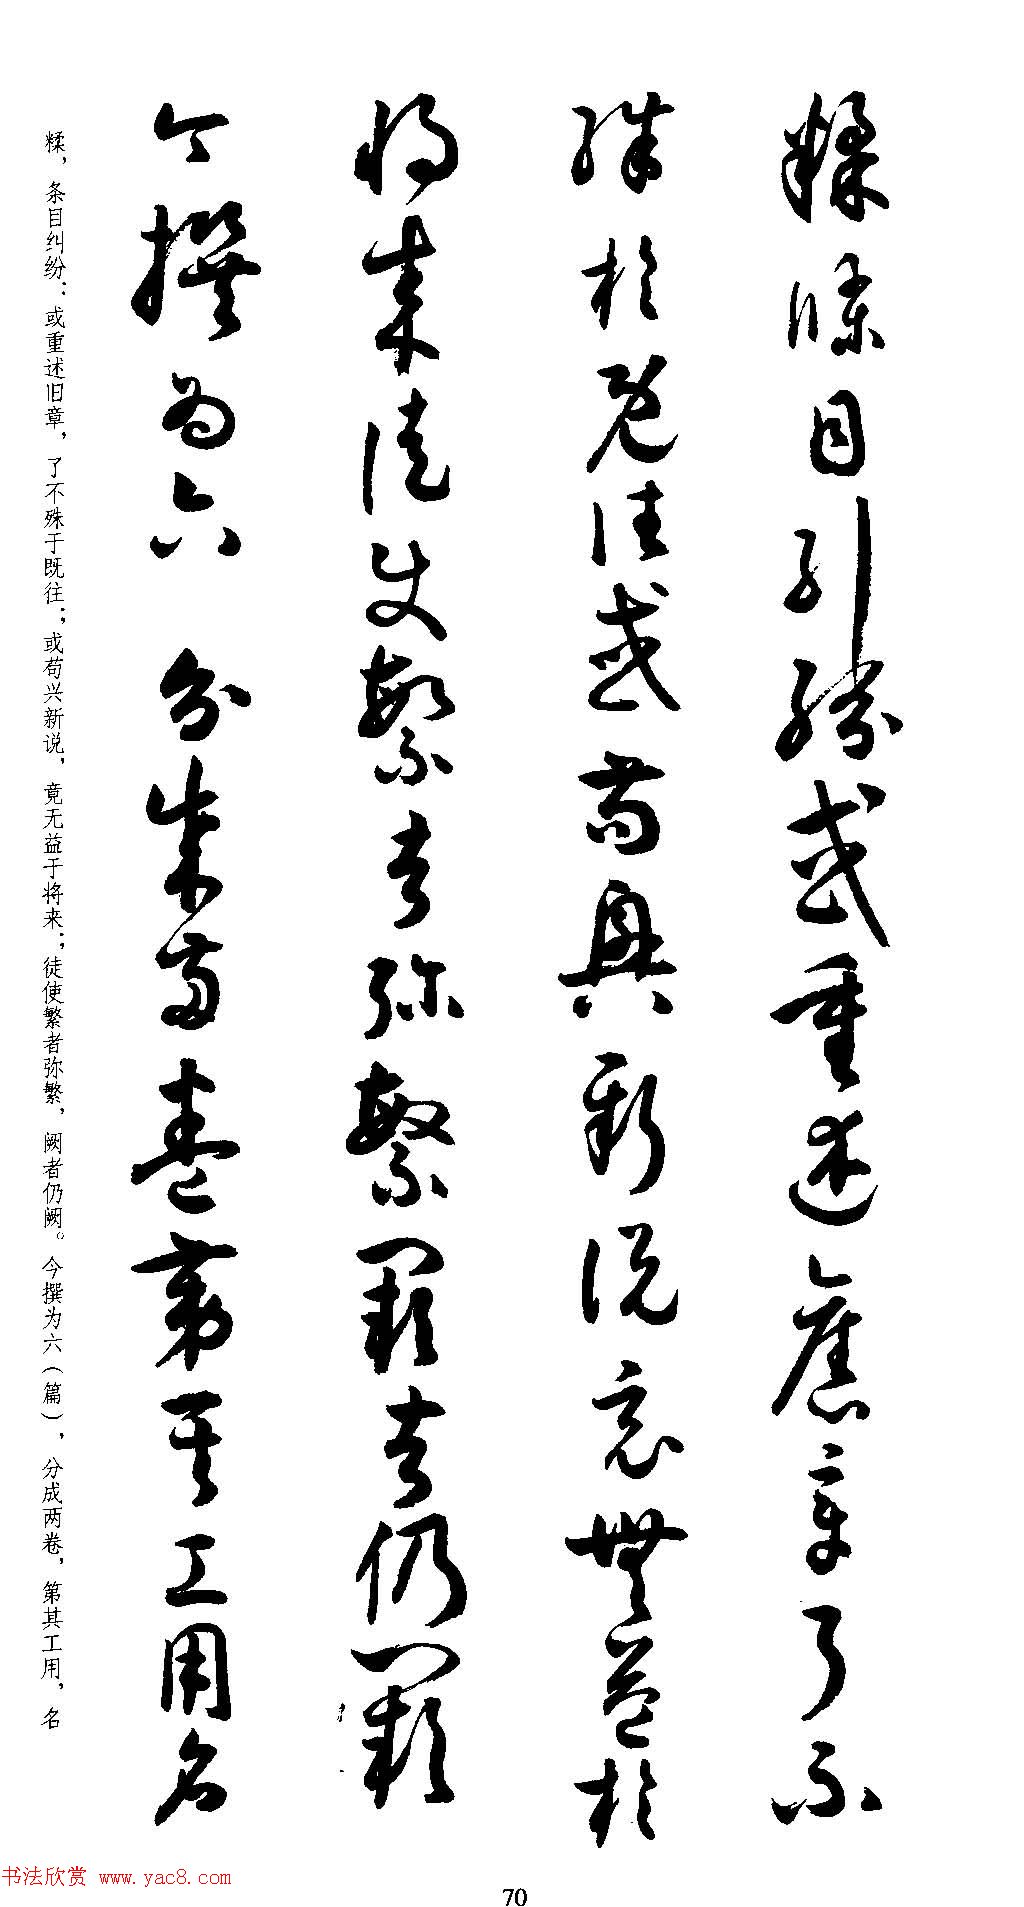 糅條目糾紛或重述舊章了不
殊於既往或苟興新說竟無益於
將來徒使繁者彌繁闕者仍闕
今撰為六分成兩卷第其工用名
糅，条目纠纷：或重述旧章，了不殊于既往；或苟兴新说，竟无益于将来；徒使繁者弥繁，阙者仍阙。今撰为六（篇），分成两卷，第其工用，名
书法欣赏 www.yac8.com
70